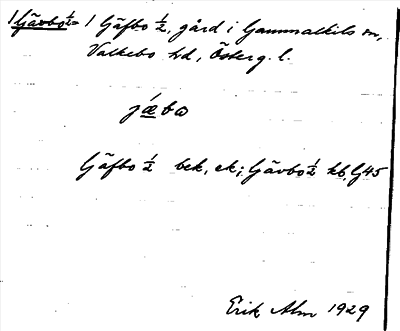 /Gävbo ½ = / Gäfbo ½, gård i Gammalkils sn,
Valkebo hd, Österg. l.
jǽbo
Gäfbo ½ bek, ek; Gävbo ½ kb, GJ45
Erik Alm 1929